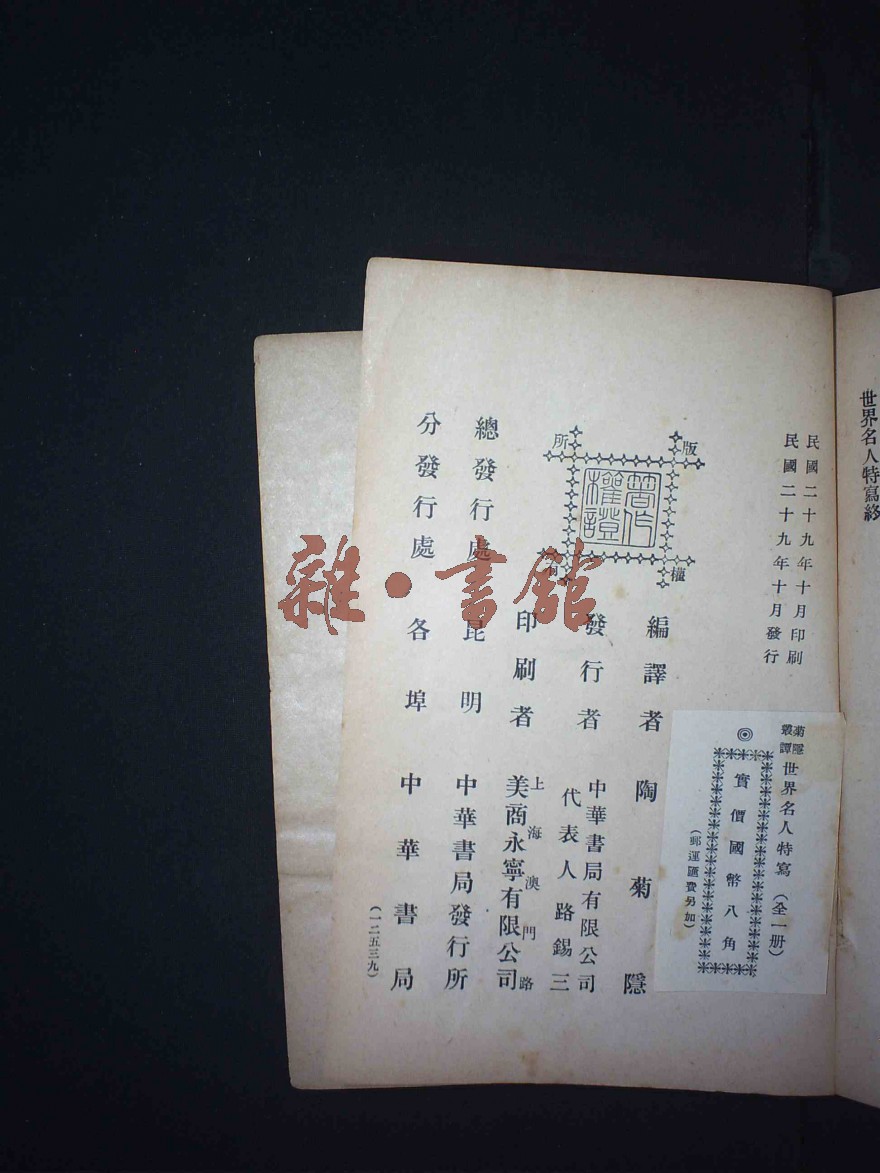 世界名人特寫終
民國二十九年十月印刷
民國二十九年十月發行
菊隱叢譚 世界名人特寫（全一册）
◎實價國幣八角
（郵運匯費另加）
版權所有
著作權證
編譯者 陶菊隱
發行者 中華書局有限公司
代表人路錫三
印刷者 上海澳門路
美商永寧有限公司
總發行處 昆明 中華書局發行所
分發行處 各埠 中華書局
（一二五三九）
雜·書館